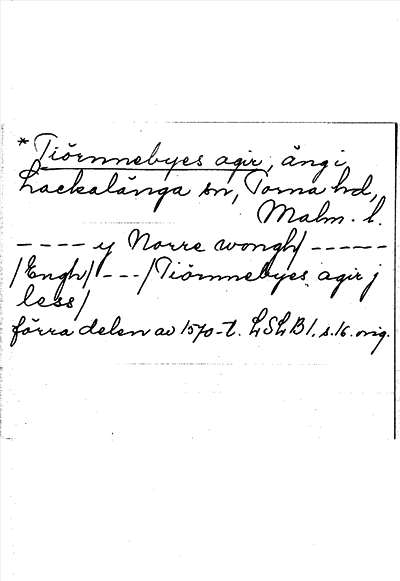 * Tiörnnebyes agir, äng i
Lackalänga sn, Torna hd,
Malm. l.
- - - - y Norre wongh/ - - - - -
/Engh/ - - -/Tiörnnebyes agir j
less/
förra delen av 1570-t. LSLB 1, s. 16. orig.